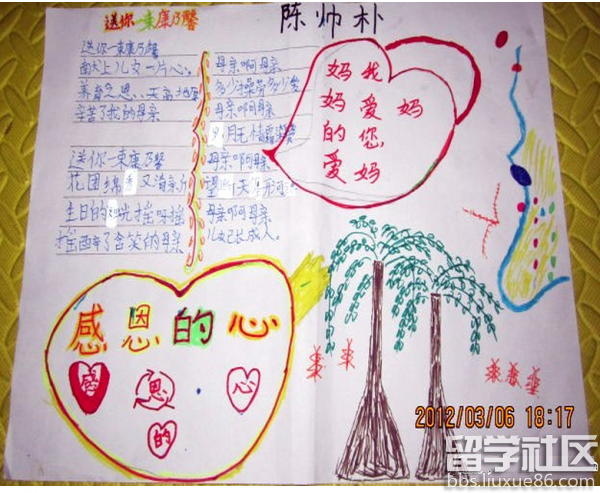 送你一束康乃馨
陈帅朴
送你一束康乃馨
献上儿女一片心。
养育之恩、天高地厚
辛苦了我的母亲
送你一束康乃馨
花团锦 又清
生日的 摇呀摇
摇醉了含笑的母亲
母亲啊母亲
多少操劳多少
母亲啊母亲
月无情
母亲啊母亲
天
母亲啊母亲
儿女已长成人。
妈妈的爱
我爱您妈
妈
感恩的心
感恩的心
2012/03/06 18:17
留学社区
bbs.liuxue86.com